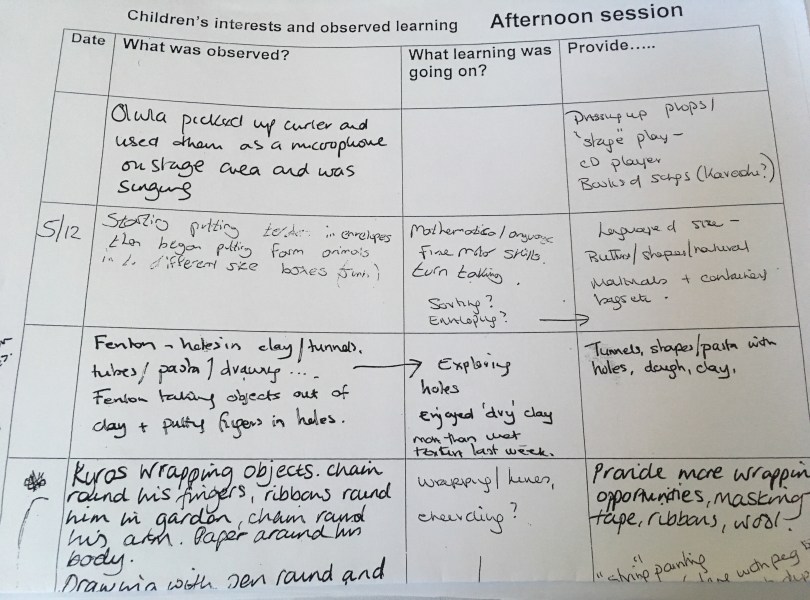 Children's interests and observed learning Afternoon session
Date
What was observed?
What learning was
going on?
Provide.....
picked up curler and
used them as a microphone
on stage area and was
singing
Dressing up props/
"stage" play –
CD player
Books of songs (Karaoke?)
5/12
Starting putting in envelopes
then began putting farm animals
in to different size boxes
Mathematics/language
Fine motor skills.
turn taking.
Sorting?
Enveloping?
Language of size –
Buttons/shapes/natural
Materials + containers
bags etc.
Fenton – holes in clay/tunnels,
tubes/ pasta/ drawing ....
Fenton taking objects out of
clay + putting fingers in holes.
Exploring
holes
Enjoyed 'dry' clay
more than wet
texture last week.
Tunnels, shapes/pasta with
holes, dough, clay,
Kyros wrapping objects. chain
round his fingers, ribbons round
him in garden, chain round
his arm. Paper around his
body.
Drawing with pen round and
wrapping/ lines,
encircling?
Provide more wrappin
opportunities, masking
tape, ribbons, wool –
"string painting
with peg